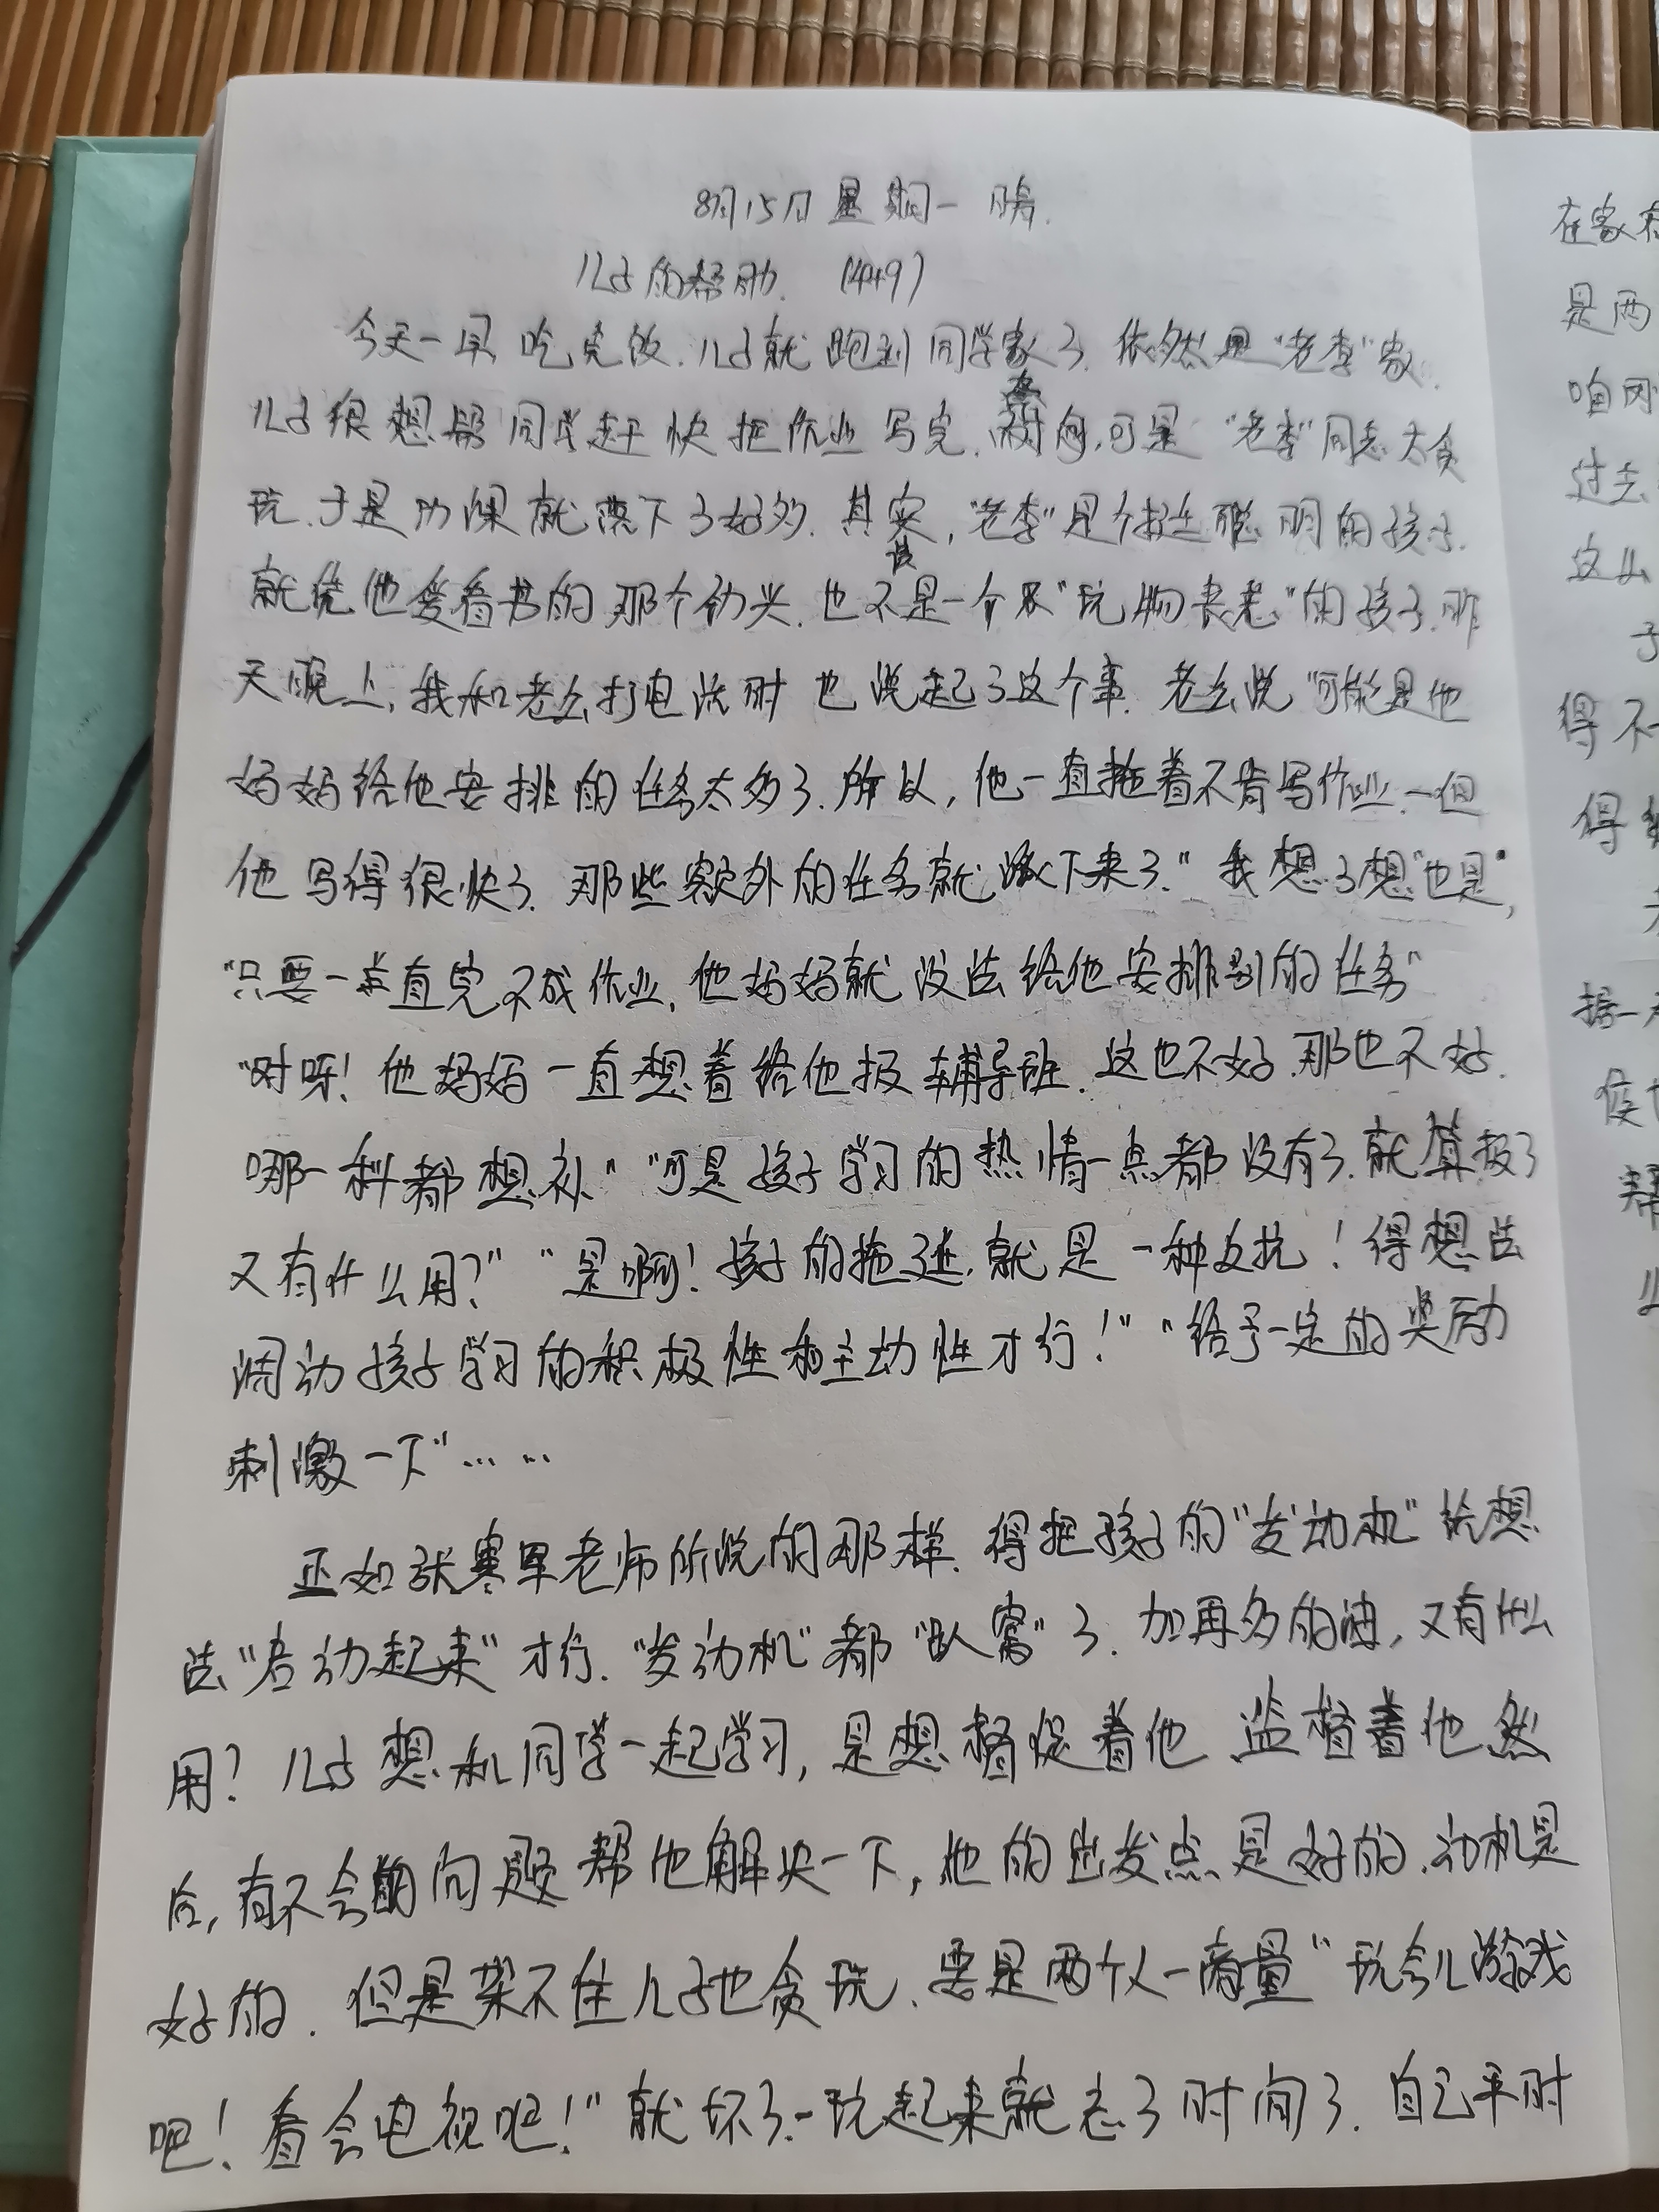 8月15日 星期一 晴.
儿子的帮助. (449)
今天一早吃完饭.儿子就跑到同学家了.依然是"老李"家.
儿子很想帮同学赶快把作业写完.可是"老李"同志太贪
玩.于是功课就落下了好多.其实,"老李"是个挺聪明的孩子.
就凭他爱看书的那个劲头.也不该是一个"玩物丧志"的孩子.昨
天晚上,我和老公打电话时也说起了这个事.老公说"可能是他
妈妈给他安排的任务太多了.所以,他一直拖着不肯写作业.一但
他写得很快了.那些额外的任务就派下来了."我想了想"也是",
"只要一直完不成作业,他妈妈就没法给他安排别的任务"
"对呀!他妈妈一直想着给他报辅导班.这也不好.那也不好.
哪一科都想补.""可是孩子学习的热情一点都没有了.就算报了
又有什么用?""是啊!孩子的拖延,就是一种反抗!得想法
调动孩子学习的积极性和主动性才行!""给予一定的奖励
刺激一下"……
正如张寒军老师所说的那样.得把孩子的"发动机"给想
法"启动起来"才行."发动机"都"趴窝"了.加再多的油,又有什么
用?儿子想和同学一起学习,是想督促着他 监督着他 然
后,有不会的问题帮他解决一下,他的出发点是好的.动机是
好的.但是架不住儿子也贪玩.要是两个人一商量"玩会儿游戏
吧!看会电视吧!"就坏了.一玩起来就忘了时间了.自己平时
在家
是两
咱
过去
这么
子
得不
得
据一